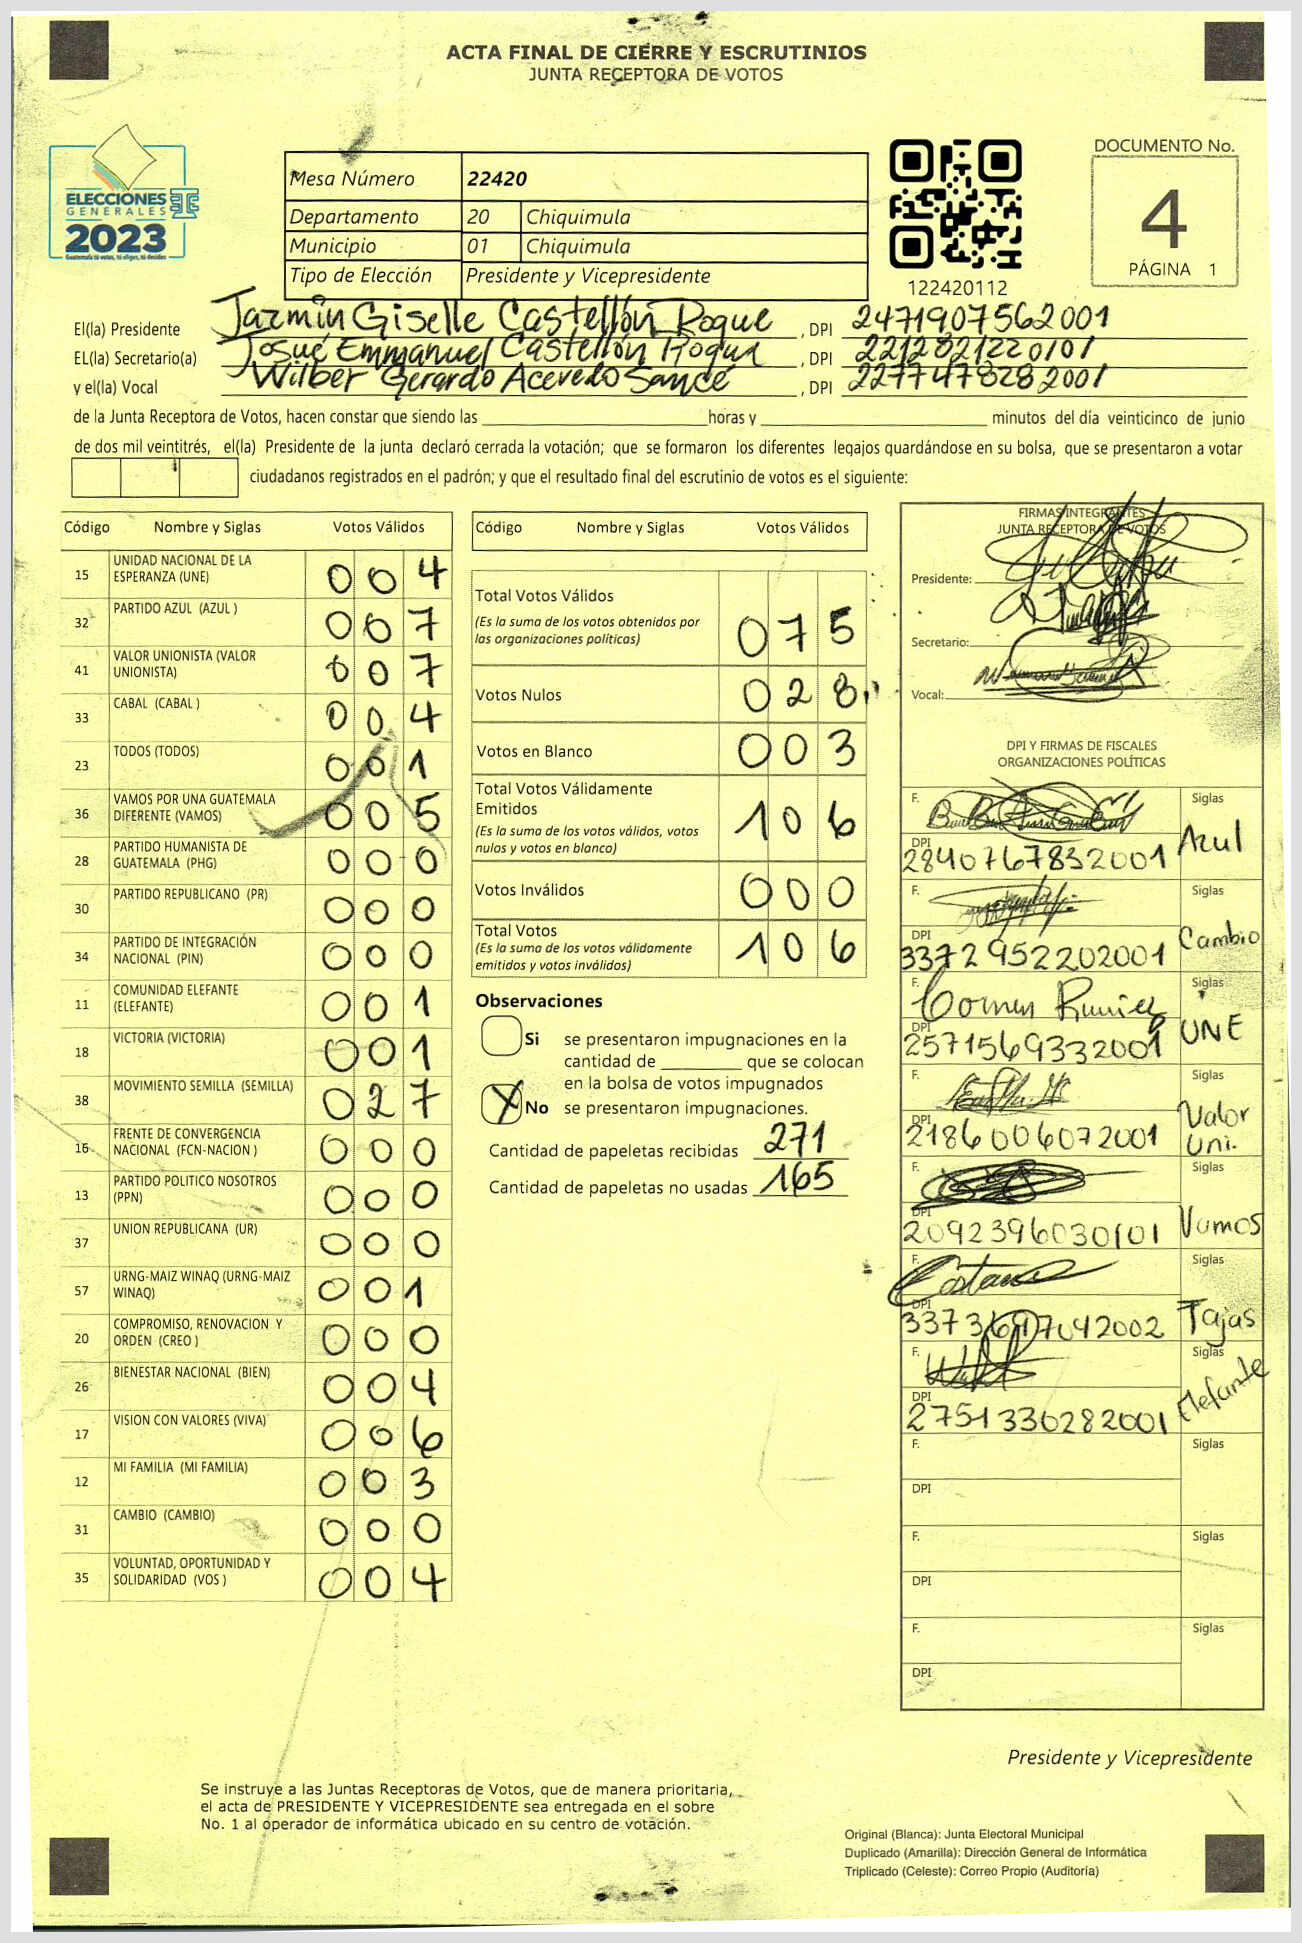 ACTA FINAL DE CIERRE Y ESCRUTINIOS
JUNTA RECEPTORA DE VOTOS
ELECCIONES
GENERALES
2023
Guatemala tú votas, tú eliges, tú decides
Mesa Número 22420
Departamento 20 Chiquimula
Municipio 01 Chiquimula
Tipo de Elección Presidente y Vicepresidente
122420112
DOCUMENTO No.
4
PÁGINA 1
El(la) Presidente Jazmín Giselle Castellón Roque, DPI 2471907562001
EL(la) Secretario(a) Josué Emmanuel Castellón Roque, DPI 2212821220101
y el(la) Vocal Wilber Gerardo Acevedo Sancé, DPI 2277478282001
de la Junta Receptora de Votos, hacen constar que siendo las horas y minutos del día veinticinco de junio
de dos mil veintitrés, el(la) Presidente de la junta declaró cerrada la votación; que se formaron los diferentes legajos guardándose en su bolsa, que se presentaron a votar
ciudadanos registrados en el padrón; y que el resultado final del escrutinio de votos es el siguiente:
Código Nombre y Siglas Votos Válidos
15 UNIDAD NACIONAL DE LA ESPERANZA (UNE) 004
32 PARTIDO AZUL (AZUL ) 007
41 VALOR UNIONISTA (VALOR UNIONISTA) 007
33 CABAL (CABAL ) 004
23 TODOS (TODOS) 001
36 VAMOS POR UNA GUATEMALA DIFERENTE (VAMOS) 005
28 PARTIDO HUMANISTA DE GUATEMALA (PHG) 000
30 PARTIDO REPUBLICANO (PR) 000
34 PARTIDO DE INTEGRACIÓN NACIONAL (PIN) 000
11 COMUNIDAD ELEFANTE (ELEFANTE) 001
18 VICTORIA (VICTORIA) 001
38 MOVIMIENTO SEMILLA (SEMILLA) 027
16 FRENTE DE CONVERGENCIA NACIONAL (FCN-NACION ) 000
13 PARTIDO POLITICO NOSOTROS (PPN) 000
37 UNION REPUBLICANA (UR) 000
57 URNG-MAIZ WINAQ (URNG-MAIZ WINAQ) 001
20 COMPROMISO, RENOVACION Y ORDEN (CREO ) 000
26 BIENESTAR NACIONAL (BIEN) 004
17 VISION CON VALORES (VIVA) 006
12 MI FAMILIA (MI FAMILIA) 003
31 CAMBIO (CAMBIO) 000
35 VOLUNTAD, OPORTUNIDAD Y SOLIDARIDAD (VOS ) 004
Código Nombre y Siglas Votos Válidos
Total Votos Válidos
(Es la suma de los votos obtenidos por
las organizaciones políticas) 075
Votos Nulos 028
Votos en Blanco 003
Total Votos Válidamente
Emitidos
(Es la suma de los votos válidos, votos
nulos y votos en blanco) 106
Votos Inválidos 000
Total Votos
(Es la suma de los votos válidamente
emitidos y votos inválidos) 106
Observaciones
Si se presentaron impugnaciones en la
cantidad de que se colocan
en la bolsa de votos impugnados
X No se presentaron impugnaciones.
Cantidad de papeletas recibidas 271
Cantidad de papeletas no usadas 165
FIRMAS INTEGRANTES
JUNTA RECEPTORA DE VOTOS
Presidente:
Secretario:
Vocal:
DPI Y FIRMAS DE FISCALES
ORGANIZACIONES POLÍTICAS
F. Siglas
DPI 2840767832001 Azul
F. Siglas
DPI 3372952202001 Cambio
F. Siglas
DPI 2571569332001 UNE
F. Siglas
DPI 2186006072001 Valor Uni.
F. Siglas
DPI 2092396030101 Vamos
F. Siglas
DPI Tajas
F. Siglas
DPI 2751330282001 Elefante
F. Siglas
DPI
F. Siglas
DPI
F. Siglas
DPI
Presidente y Vicepresidente
Se instruye a las Juntas Receptoras de Votos, que de manera prioritaria,
el acta de PRESIDENTE Y VICEPRESIDENTE sea entregada en el sobre
No. 1 al operador de informática ubicado en su centro de votación.
Original (Blanca): Junta Electoral Municipal
Duplicado (Amarilla): Dirección General de Informática
Triplicado (Celeste): Correo Propio (Auditoría)